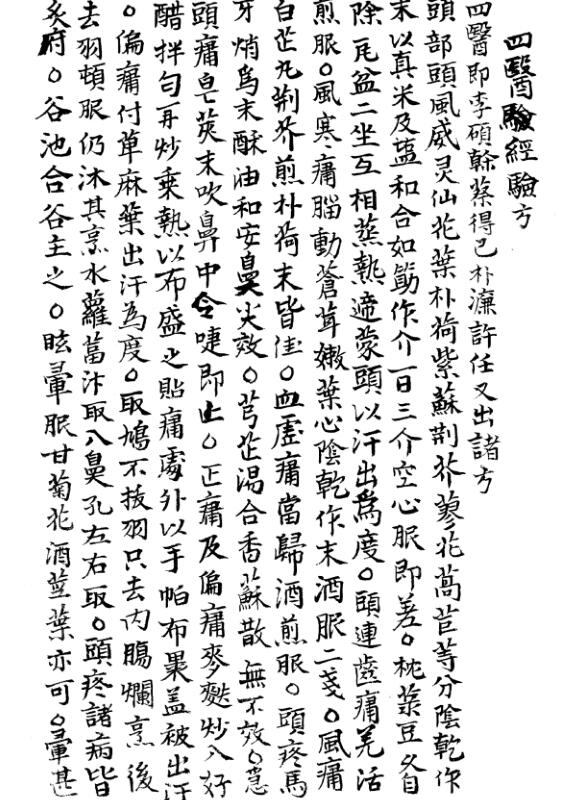 四醫驗經驗方
四醫即李碩幹蔡得己朴濂許任又出諸方
頭部頭風威灵仙花葉朴荷紫蘇荆芥蓼花萵苣等分陰乾作
末以真米及塩和合如筯作介一日三介空心服即差○枕菉豆久自
除瓦盆二坐互相蒸熱適蒙頭以汗出爲度○頭連齒痛羌活
煎服○風寒痛腦動蒼茸嫩葉心陰乾作末酒服二戔○風痛
白芷丸荆芥煎朴荷末皆佳○血虛痛當歸酒煎服○頭疼馬
牙焇爲末酥油和安鼻尖效○芎芷湯合香蘇散無不效○意
頭痛皂莢末吹鼻中令嚏即止○正痛及偏痛麥麩炒入好
醋拌匀再炒乘熱以布盛之貼痛處外以手帕布果盖被出汗
○偏痛付草麻葉出汗為度○取鳩不拔羽只去内腸爛烹後
去羽頓服仍沐其烹水蘿葍汁取入鼻孔左右取○頭疼諸病皆
灸府○谷池合谷主之○眩暈服甘菊花酒莖葉亦可○暈甚